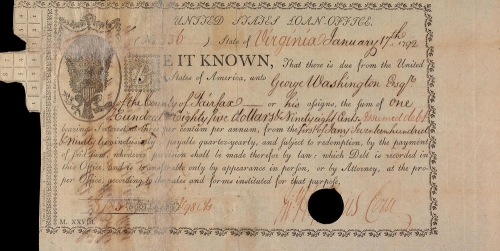 UNITED STATES LOAN-OFFICE.
(No. 36 ) State of Virginia January 17th 1792
BE IT KNOWN, That there is due from the United
States of America, unto George Washington Esqr
of the County of Fairfax or his assigns, the sum of one
Hundred Eighty five dollars & Ninety eight Cents Assumed debt
bearing Interest at three per centum per annum, from the first of Jany Seventeen hundred
& Ninety two inclusively, payable quarter-yearly, and subject to redemption, by the payment
of said sum, whenever provision shall be made therefor by law: which Debt is recorded in
this Office, and is transferable only by appearance in person, or by Attorney, at the pro-
per Office, according to the rules and forms instituted for that purpose.
M. XXVIII.